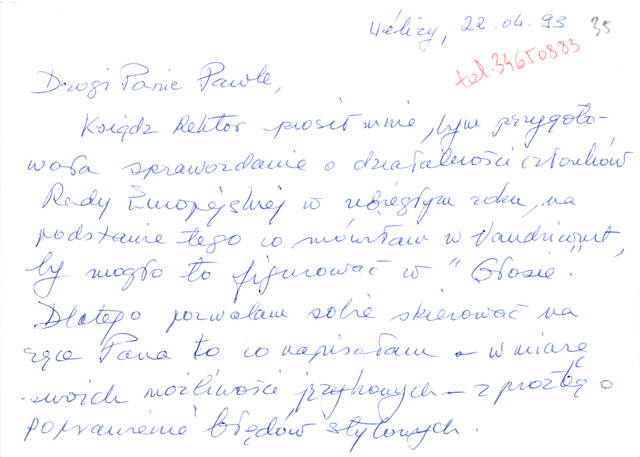 Vélizy, 22.04.93 35
tel. 34650883
Drogi Panie Pawle,
Ksiądz Rektor prosił mnie, bym przygoto-
wała sprawozdanie o działalności członków
Rady Europejskiej w ubiegłym roku, na
podstawie tego co mówiłam w Vaudricourt,
by mogło to figurować w "Głosie".
Dlatego pozwalam sobie skierować na
ręce Pana to co napisałam - w miarę
swoich możliwości językowych - z prośbą o
poprawienie błędów stylowych.